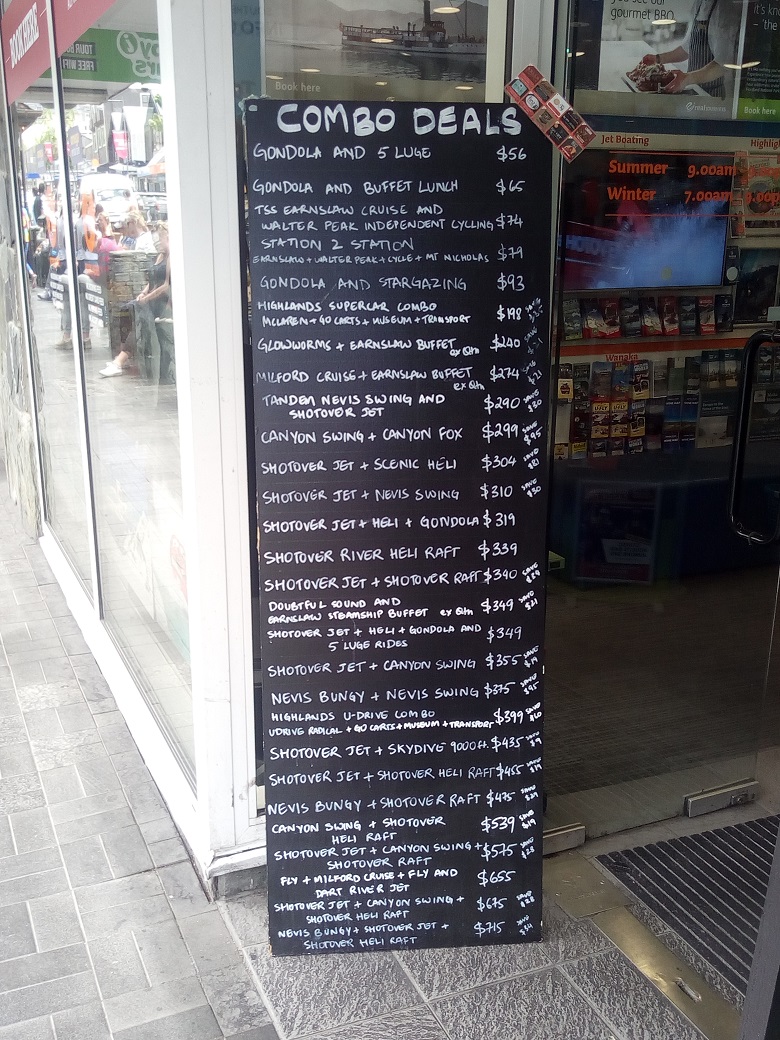 BOOK HERE
TOUR
FREE WIFI
Book here
you see our
gourmet BBQ
it's kno
Book here
COMBO DEALS
GONDOLA AND 5 LUGE $56
GONDOLA AND BUFFET LUNCH $65
TSS EARNSLAW CRUISE AND
WALTER PEAK INDEPENDENT CYCLING $74
STATION 2 STATION
EARNSLAW + WALTER PEAK + CYCLE + MT NICHOLAS $79
GONDOLA AND STARGAZING $93
HIGHLANDS SUPERCAR COMBO
MCLAREN + GO CARTS + MUSEUM + TRANSPORT $198
GLOWWORMS + EARNSLAW BUFFET ex Qtn $240
MILFORD CRUISE + EARNSLAW BUFFET ex Qtn $274
TANDEM NEVIS SWING AND
SHOTOVER JET $290
CANYON SWING + CANYON FOX $299 SAVE $95
SHOTOVER JET + SCENIC HELI $304 SAVE $21
SHOTOVER JET + NEVIS SWING $310 SAVE $30
SHOTOVER JET + HELI + GONDOLA $319
SHOTOVER RIVER HELI RAFT $339
SHOTOVER JET + SHOTOVER RAFT $340 SAVE
DOUBTFUL SOUND AND
EARNSLAW STEAMSHIP BUFFET ex Qtn $349 SAVE
SHOTOVER JET + HELI + GONDOLA AND
5 LUGE RIDES $349
SHOTOVER JET + CANYON SWING $355 SAVE $19
NEVIS BUNGY + NEVIS SWING $375 SAVE $95
HIGHLANDS U-DRIVE COMBO
UDRIVE RADICAL + GO CARTS + MUSEUM + TRANSPORT $399 SAVE
SHOTOVER JET + SKYDIVE 9000ft. $435 SAVE
SHOTOVER JET + SHOTOVER HELI RAFT $455 SAVE
NEVIS BUNGY + SHOTOVER RAFT $475 SAVE
CANYON SWING + SHOTOVER
HELI RAFT $539 SAVE
SHOTOVER JET + CANYON SWING +
SHOTOVER RAFT $575 SAVE
FLY + MILFORD CRUISE + FLY AND
DART RIVER JET $655
SHOTOVER JET + CANYON SWING +
SHOTOVER HELI RAFT $675 SAVE
NEVIS BUNGY + SHOTOVER JET +
SHOTOVER HELI RAFT $715 SAVE
Jet Boating
Summer 9.00am
Winter 7.00am
Wanaka